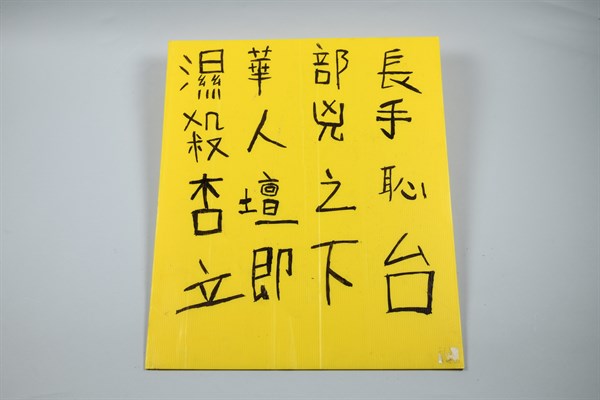 濕華部長
殺人兇手
杏壇之恥
立即下台